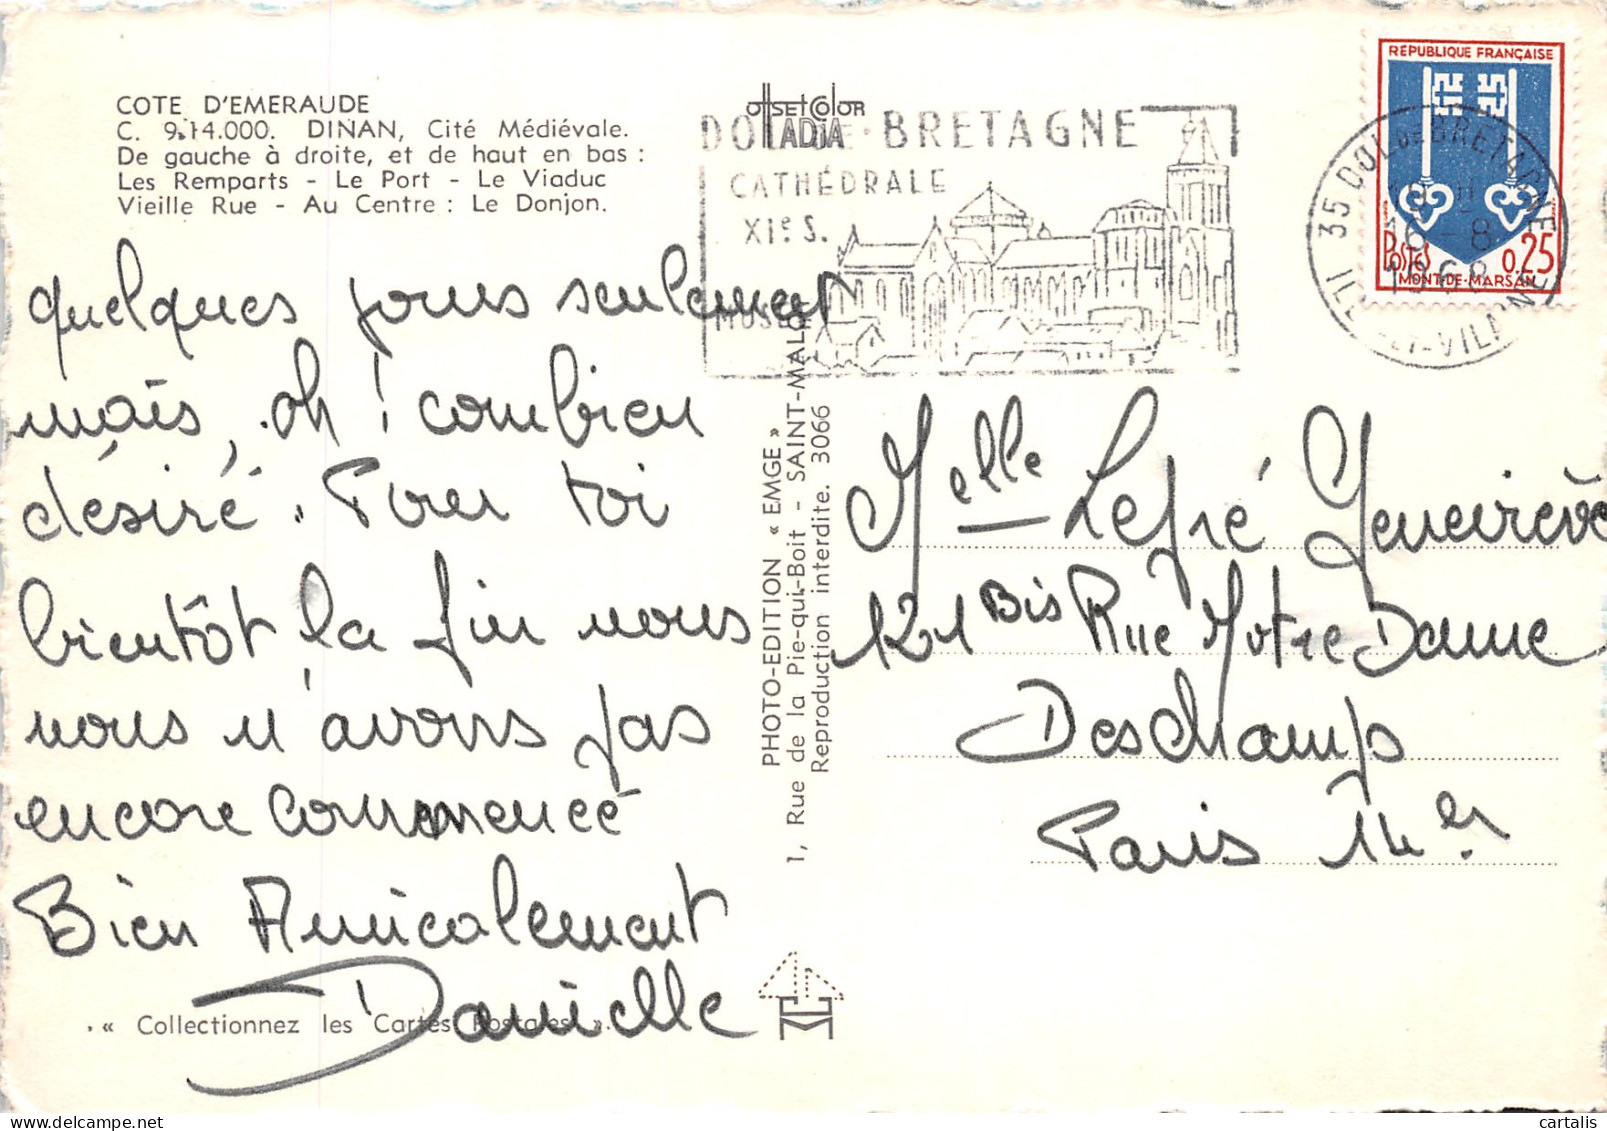 COTE D'EMERAUDE
C. 9.14.000. DINAN, Cité Médiévale.
De gauche à droite, et de haut en bas :
Les Remparts - Le Port - Le Viaduc
Vieille Rue - Au Centre : Le Donjon.
quelques jours seulement
mais, oh ! combien
désiré. Pour toi
bientôt la fin nous
nous n'avons pas
encore commencé
Bien Amicalement
Danielle
« Collectionnez les Cartes Postales ».
offset color
IADIA
DOL DE BRETAGNE
CATHÉDRALE
XIe S.
MUSÉE
PHOTO-EDITION « EMGE »
1, Rue de la Pie-qui-Boit - SAINT-MALO
Reproduction interdite. 3066
RÉPUBLIQUE FRANÇAISE
POSTES 0,25
MONT-DE-MARSAN
35 DOL DE BRETAGNE
16-8
1968
ILLE-ET-VILAINE
Melle Lepré Geneviève
121 Bis Rue Notre Dame
Des champs
Paris 14er
cartalis